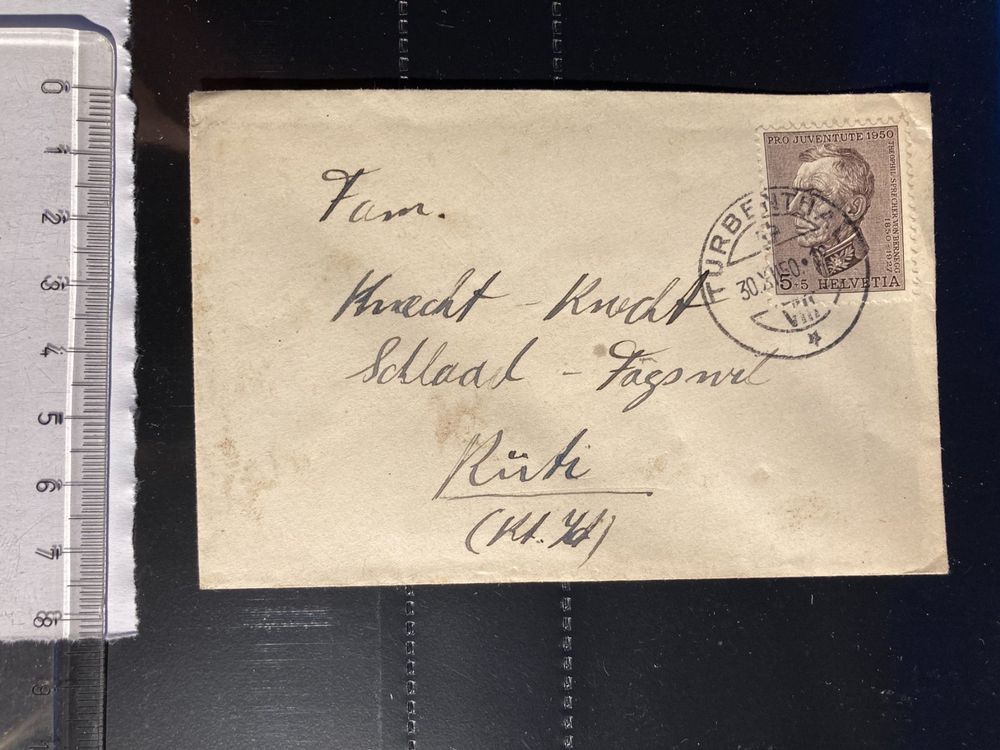 PRO JUVENTUTE 1950
THEOPHIL SPRECHER VON BERNEGG
1850-1927
5+5 HELVETIA
TURBENTHAL
30.XII.50
Fam.
Knecht - Knecht
Schlaad - Fägswil
Rüti
(Kt. Zch)
0
1
2
3
4
5
6
7
8
9